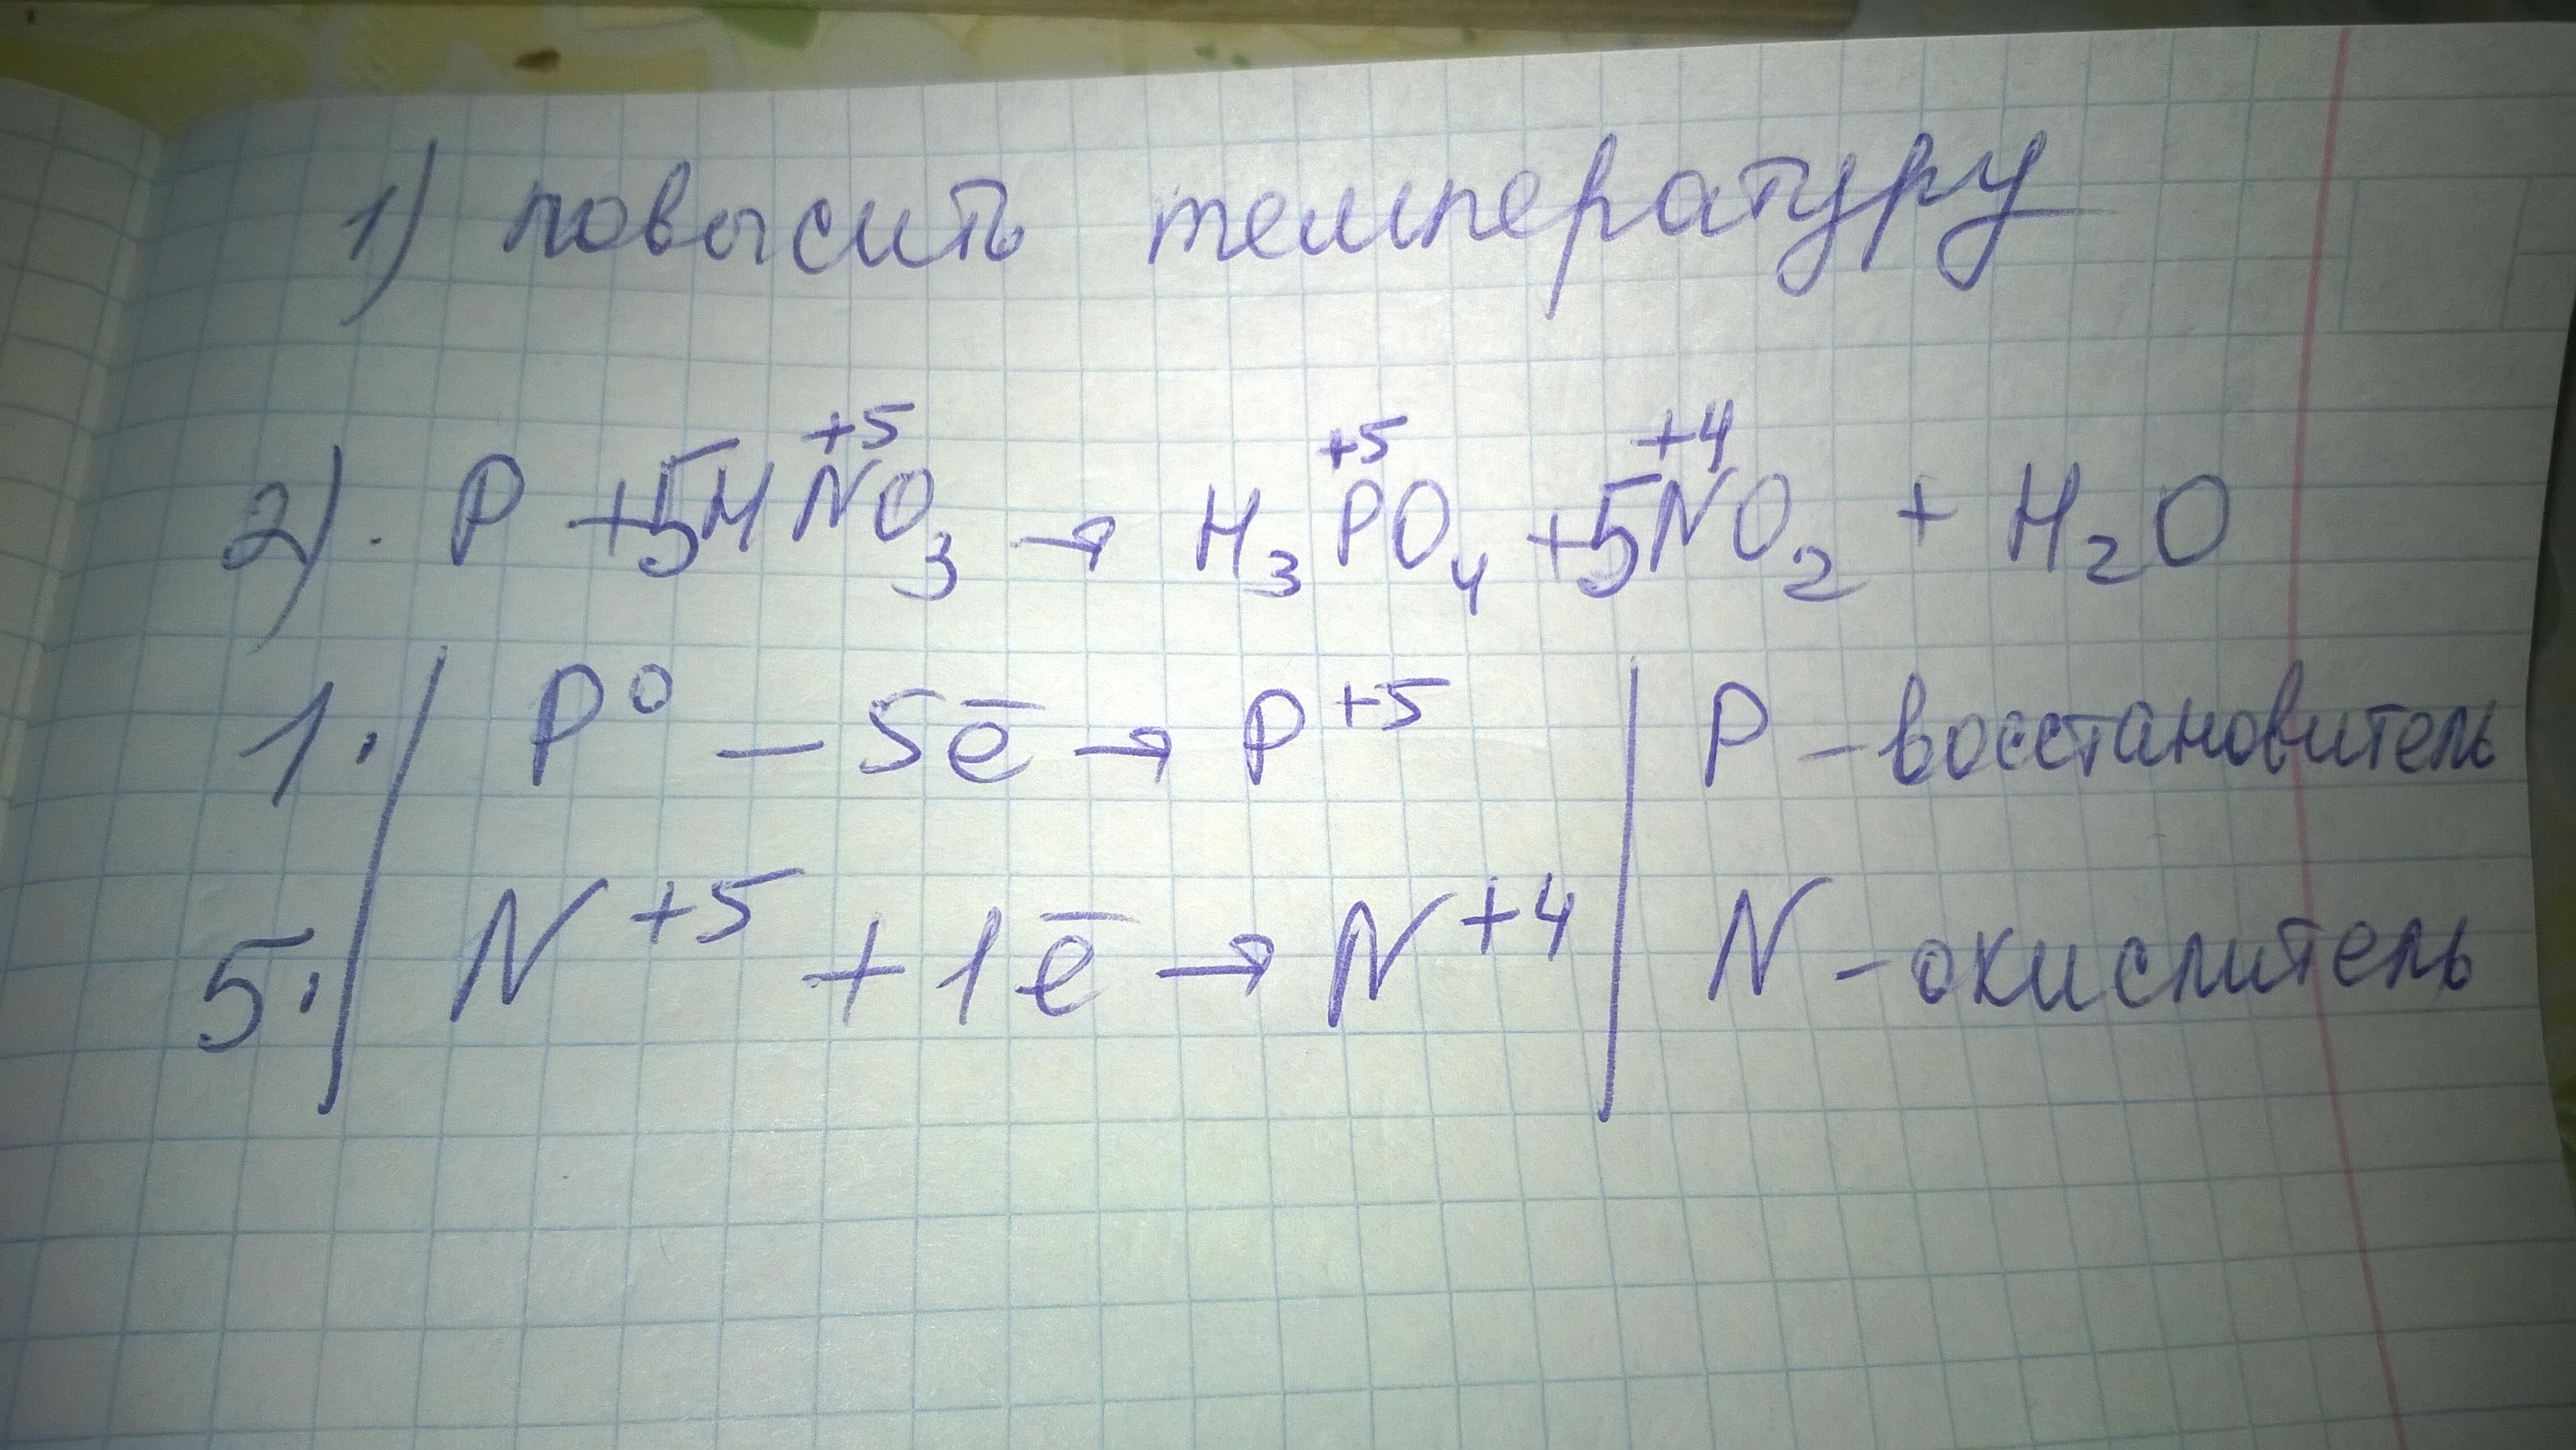 1) повысить температуру
2). P + 5HN⁺⁵O₃ → H₃P⁺⁵O₄ + 5N⁺⁴O₂ + H₂O
1. | P⁰ – 5ē → P⁺⁵ | P – восстановитель
5. | N⁺⁵ + 1ē → N⁺⁴ | N – окислитель